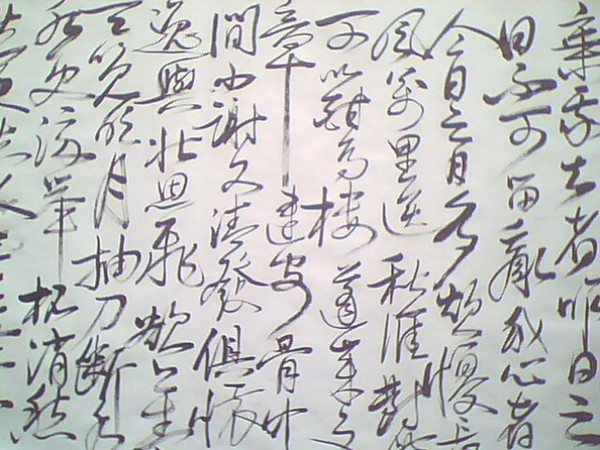 棄我去者昨日之
日不可留亂我心者
今日之日多煩憂長
風萬里送秋雁對此
可以酣高樓蓬萊文
章建安骨中
間小謝又清發俱懷
逸興壯思飛欲上青
天覽明月抽刀斷水
水更流舉杯消愁